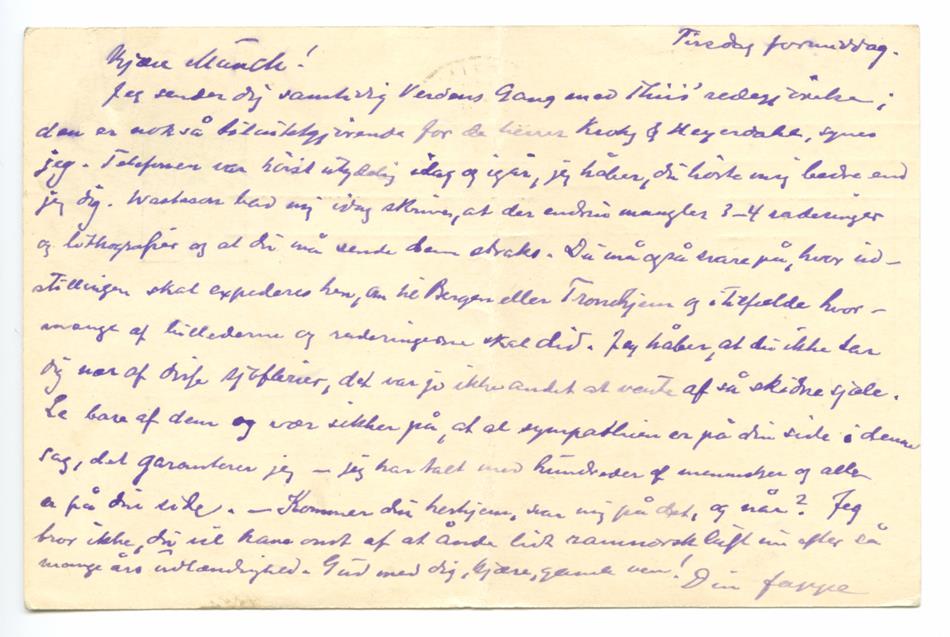 Tirsdag formiddag.
Kjære Munch!
Jeg sender dig samtidig Verdens Gang med Thiis' redegjörelse;
den er nokså tilintetgjörende for de herrer Krohg & Heyerdahl, synes
jeg. Telefonen var höist utydelig idag og igår, jeg håber, du hörte mig bedre end
jeg dig. bad mig idag skrive, at der endnu mangler 3-4 raderinger
og lithografier og at du må sende dem straks. Du må også svare på, hvor ud-
stillingen skal expederes hen, om til Bergen eller Tronhjem og itilfælde hvor-
mange af billederne og raderingerne skal did. Jeg håber, at du ikke tar
dig nær af disse sjöflerier, det var jo ikke andet at vente af så skidne sjæle.
Le bare af dem og vær sikker på, at al sympathien er på din side i denne
sag, det garanterer jeg – jeg har talt med hundreder af mennesker og alle
er på din side. – Kommer du herhjem, svar mig på det, og når? Jeg
tror ikke, du vil have ondt af at ånde lidt ramnorsk luft nu efter så
mange års udlændighed. Gud med dig, kjære, gamle ven! Din Jappe